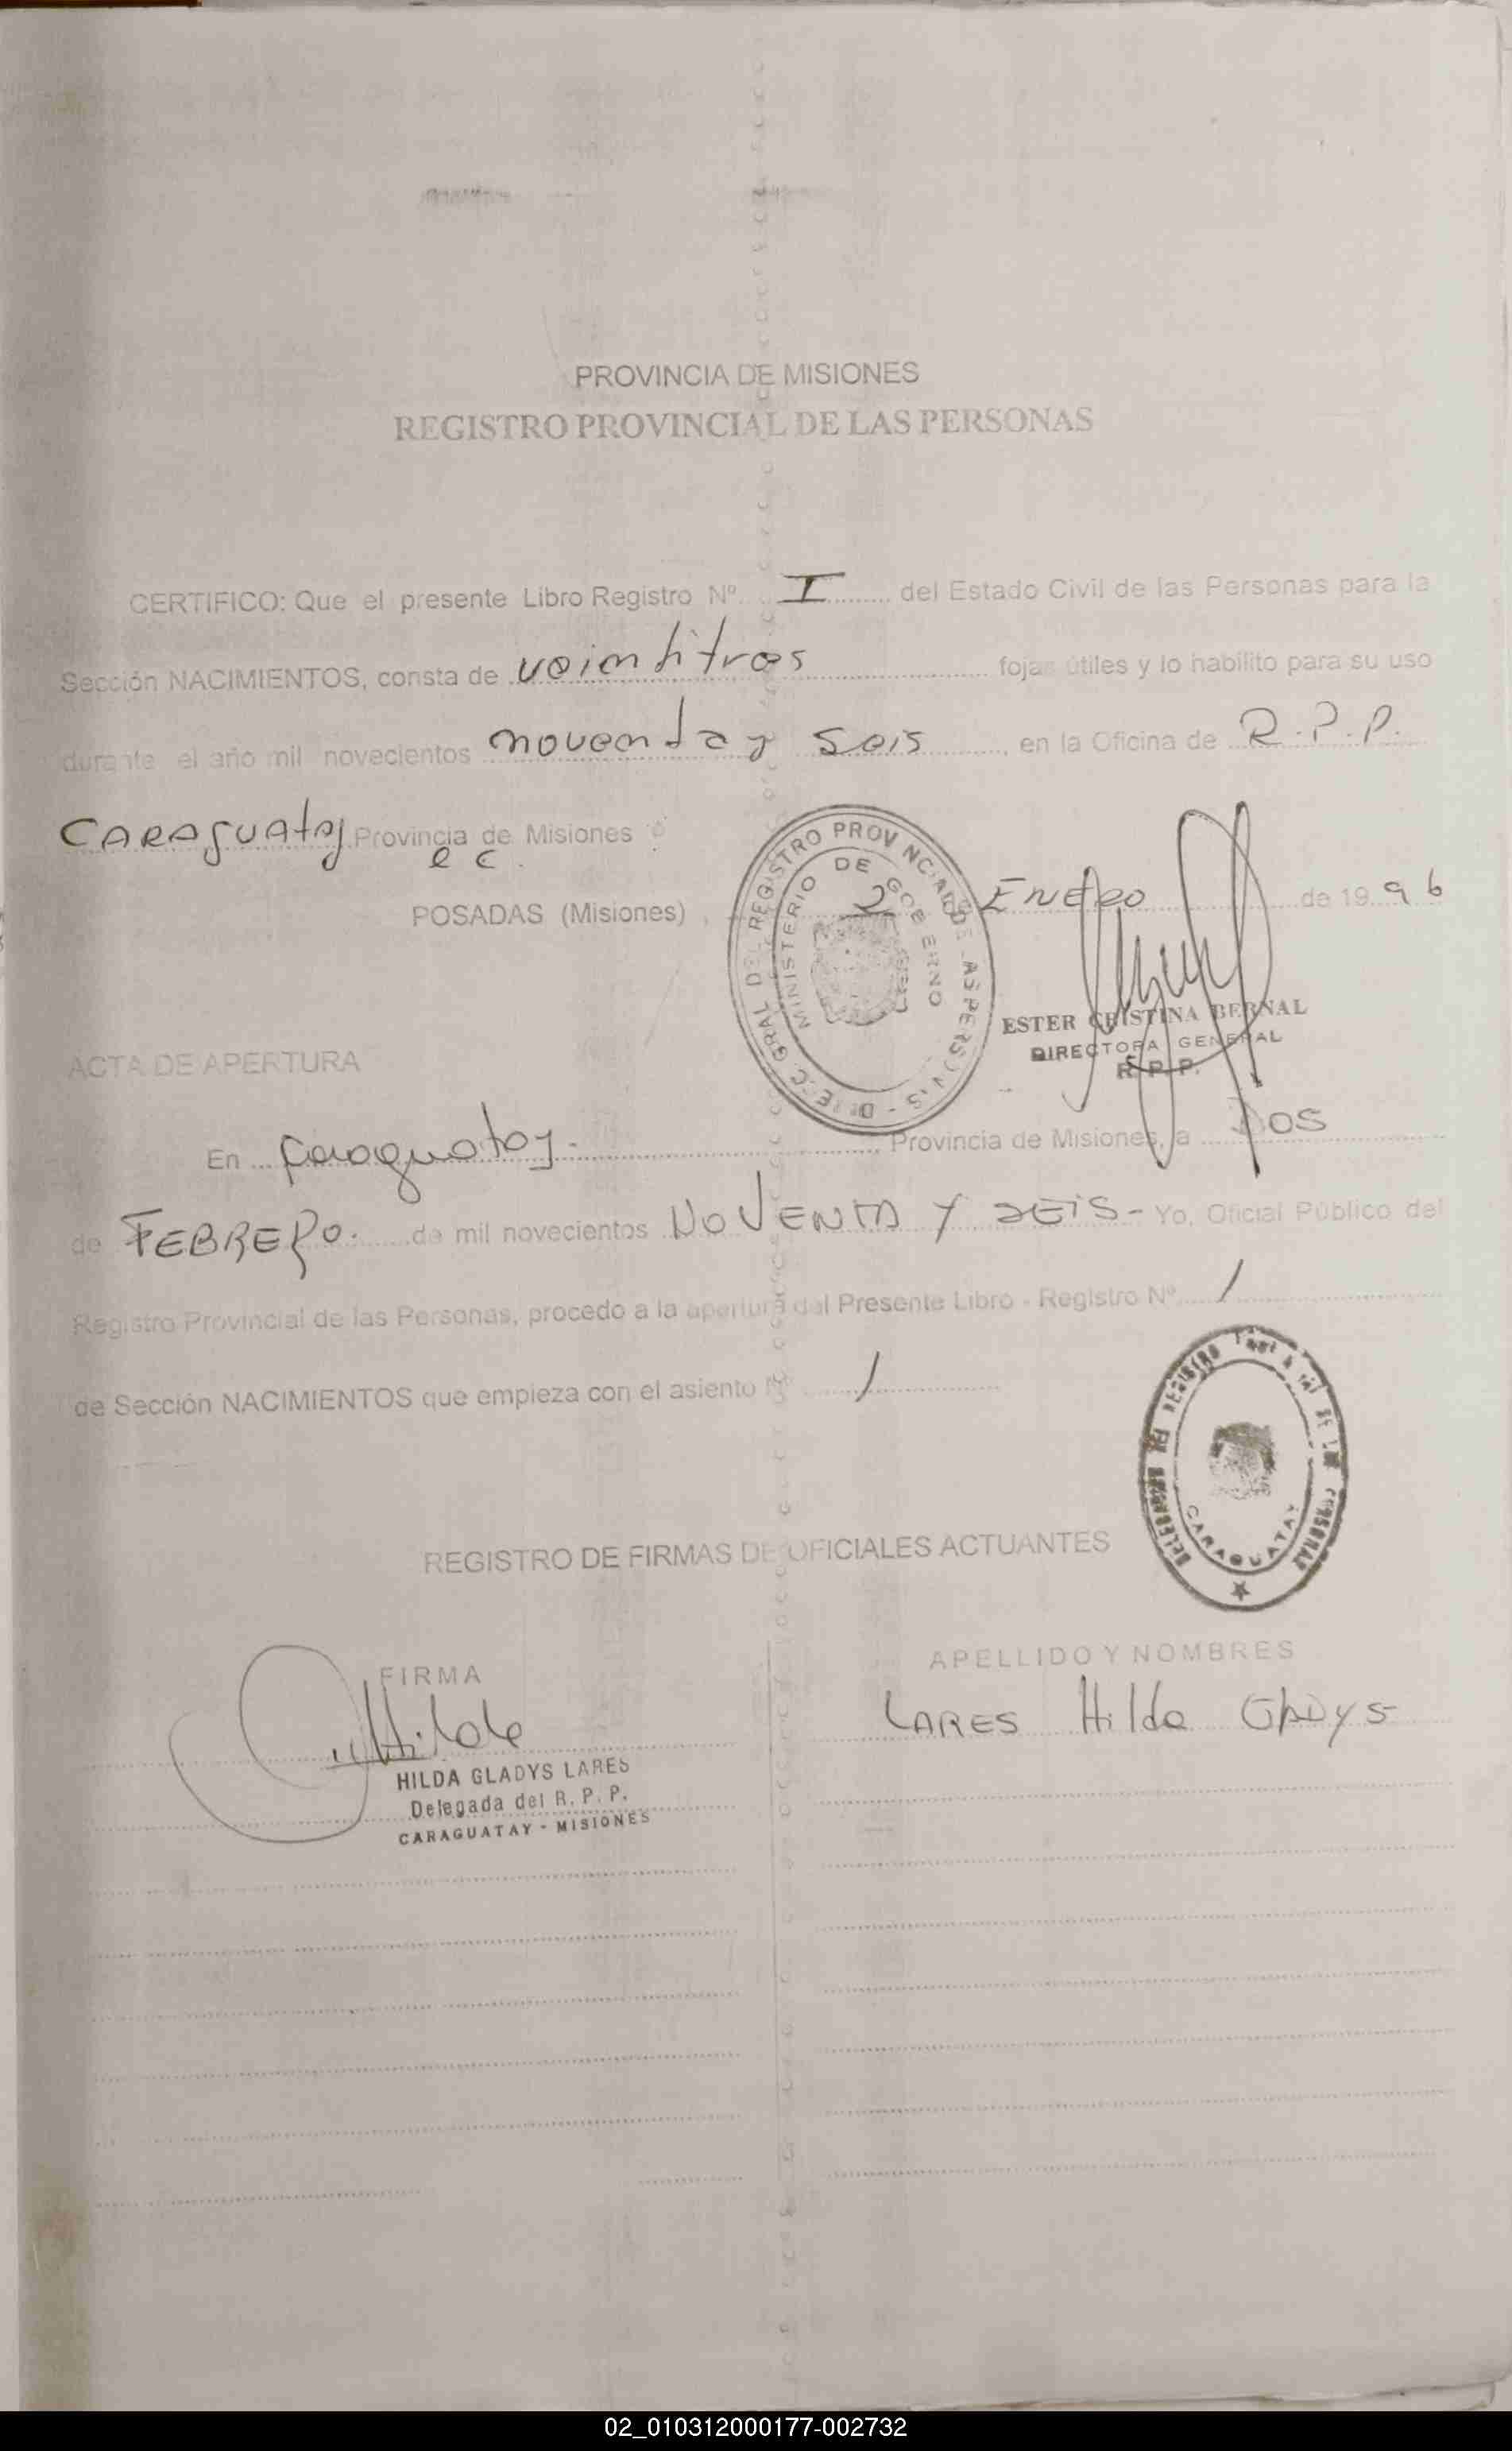 PROVINCIA DE MISIONES
REGISTRO PROVINCIAL DE LAS PERSONAS
CERTIFICO: Que el presente Libro Registro Nº I del Estado Civil de las Personas para la
Sección NACIMIENTOS, consta de veintitres fojas útiles y lo habilito para su uso
durante el año mil novecientos noventa y seis, en la Oficina de R.P.P.
CARAGUATAY Provincia de Misiones
POSADAS (Misiones), 2 ENERO de 1996
DIREC. GRAL DEL REGISTRO PROVINCIAL DE LAS PERSONAS
MINISTERIO DE GOBIERNO
ESTER CRISTINA BERNAL
DIRECTORA GENERAL
R. P. P.
ACTA DE APERTURA
En Caraguatay. Provincia de Misiones, a DOS
de FEBRERO. de mil novecientos NOVENTA Y SEIS- Yo, Oficial Público del
Registro Provincial de las Personas, procedo a la apertura del Presente Libro - Registro Nº 1
de Sección NACIMIENTOS que empieza con el asiento Nº 1
CARAGUATAY
REGISTRO DE FIRMAS DE OFICIALES ACTUANTES
FIRMA
APELLIDO Y NOMBRES
LARES Hilda GLADYS
HILDA GLADYS LARES
Delegada del R. P. P.
CARAGUATAY - MISIONES
02_010312000177-002732